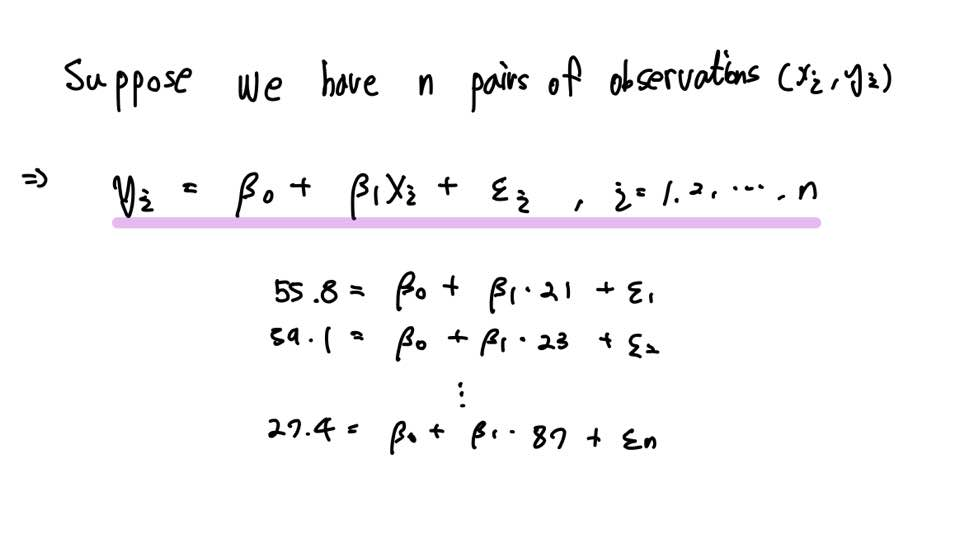 Suppose we have n pairs of observations (xᵢ, yᵢ)
⇒ yᵢ = β₀ + β₁xᵢ + εᵢ , i = 1. 2. ⋯ . n
55.8 = β₀ + β₁ · 21 + ε₁
59.1 = β₀ + β₁ · 23 + ε₂
⋮
27.4 = β₀ + β₁ · 87 + εₙ